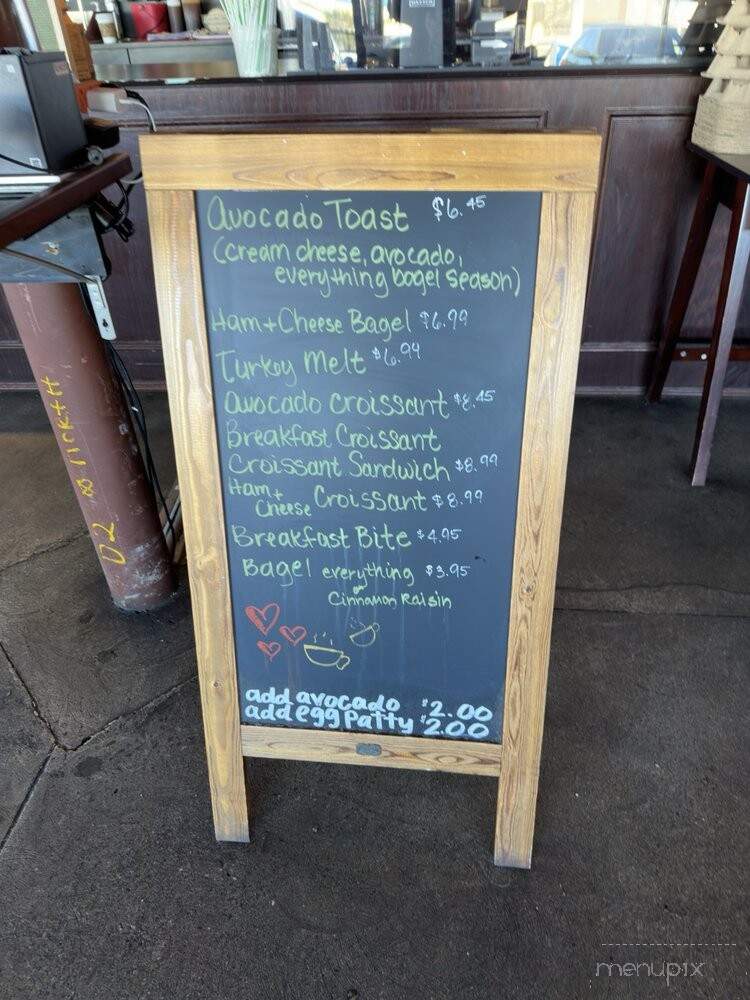 Avocado Toast $6.45
(cream cheese, avocado,
everything bagel season)
Ham + Cheese Bagel $6.99
Turkey Melt $6.94
Avocado Croissant $8.45
Breakfast Croissant
Croissant Sandwich $8.99
Ham + Cheese Croissant $8.99
Breakfast Bite $4.95
Bagel everything $3.95
or
Cinnamon Raisin
add avocado $2.00
add egg patty $2.00
D2
menupix